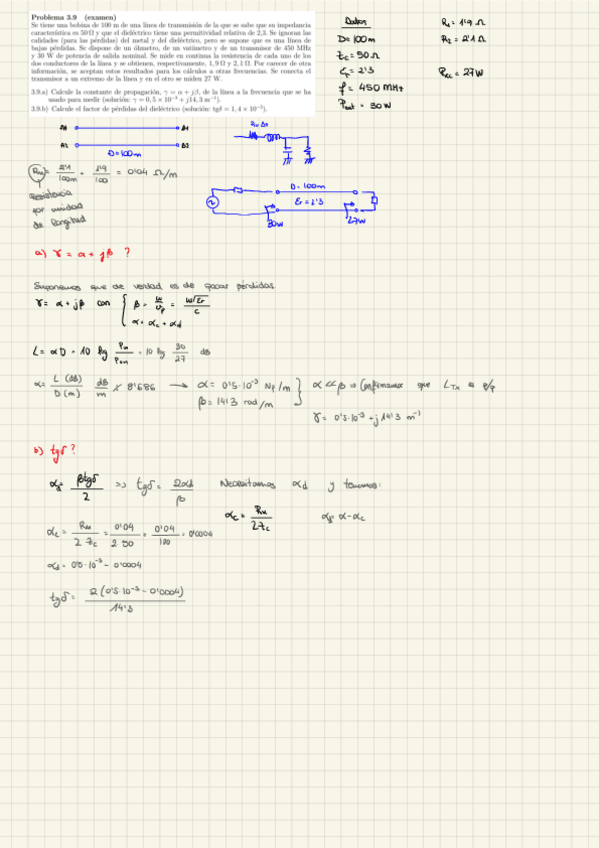 Problema 3.9 (examen)
Se tiene una bobina de 100 m de una línea de transmisión de la que se sabe que su impedancia
característica es 50 Ω y que el dieléctrico tiene una permitividad relativa de 2,3. Se ignoran las
calidades (para las pérdidas) del metal y del dieléctrico, pero se supone que es una línea de
bajas pérdidas. Se dispone de un óhmetro, de un vatímetro y de un transmisor de 450 MHz
y 30 W de potencia de salida nominal. Se mide en continua la resistencia de cada uno de los
dos conductores de la línea y se obtienen, respectivamente, 1,9 Ω y 2,1 Ω. Por carecer de otra
información, se aceptan estos resultados para los cálculos a otras frecuencias. Se conecta el
transmisor a un extremo de la línea y en el otro se miden 27 W.
3.9.a) Calcule la constante de propagación, γ = α + jβ, de la línea a la frecuencia que se ha
usado para medir (solución: γ = 0,5 × 10⁻³ + j14,3 m⁻¹).
3.9.b) Calcule el factor de pérdidas del dieléctrico (solución: tgδ = 1,4 × 10⁻⁵).
Datos
D = 100 m
Zc = 50 Ω
εr = 2'3
f = 450 MHz
Pout = 30 W
R1 = 1'9 Ω
R2 = 2'1 Ω
Prec = 27 W
B1
A2 B2
D = 100m
Ru = 2'1/100m + 1'9/100 = 0'04 Ω/m
Resistencia
por unidad
de longitud
D = 100m
εr = 2'3
30W 27W
a) γ = α + jβ ?
Suponemos que de verdad es de pocas pérdidas
γ = α + jβ con { β = w/vp = w√εr/c
α = αc + αd
L = αD = 10 lg Pin/Pout = 10 lg 30/27 dB
α = L (dB)/D (m) dB/m × 8'686 → α = 0'5·10⁻³ Np/m
β = 14'3 rad/m
} α << β ⇒ Confirmamos que LTx es p/p
γ = 0'5·10⁻³ + j 14'3 m⁻¹
b) tgδ ?
αd = βtgδ/2 ⇒ tgδ = 2αd/β Necesitamos αd y tenemos:
αc = Ru/2Zc αd = α - αc
αc = Ru/2 Zc = 0'04/2·50 = 0'04/100 = 0'0004
αd = 0'5·10⁻³ - 0'0004
tgδ = 2 (0'5·10⁻³ - 0'0004)/14'3